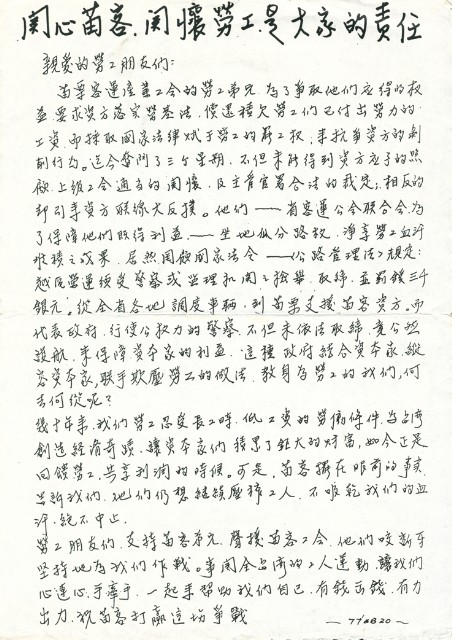 關心苗客、關懷勞工是大家的責任
親愛的勞工朋友們：
苗栗客運產業工會的勞工弟兄，為了爭取他們應得的權
益，要求資方落實勞基法，償還積欠勞工們已付出勞力的
工資，而採取國家法律賦于勞工的罷工權，來抗爭資方的剝
削行為。迄今奮鬥了三个星期，不但未能得到資方應予的照
做，上級工會適当的關懷，及主管官署合法的裁定；相反的
却引來資方聯線大反撲。他們——省客運公會联合會為
了保障他們既得利益——坐地瓜分路权，淨享勞工血汗
堆積之成果，居然罔顧國家法令——公路管理法之規定：
越區營運須受警察或监理机關之檢舉、取締，並罰錢三千
銀元。從全省各地調度車輛，到苗栗支援苗客資方。而
代表政府，行使公权力的警察，不但未依法取締，竟公然
護航，來保障資本家的利益。這種政府結合資本家，縱
容資本家，联手欺壓勞工的做法，教身為勞工的我們，何
去何從呢？
幾十年來，我們勞工忍受長工時、低工資的勞働條件，為台湾
創造經濟奇蹟，讓資本家們積累了鉅大的財富，如今正是
回饋勞工，共享利潤的時候。可是，苗客擺在眼前的事实
告訴我們，他們仍想繼續壓榨工人，不吸乾我們的血
汗，絕不中止。
勞工朋友們，支持苗客弟兄，聲援苗客工会，他們咬斷牙
坚持地為我們作戰。事関全台湾的工人運動，讓我們
心連心，手牽手，一起來帮助我們自己，有錢出錢，有力
出力，祝苗客打贏這場爭戰